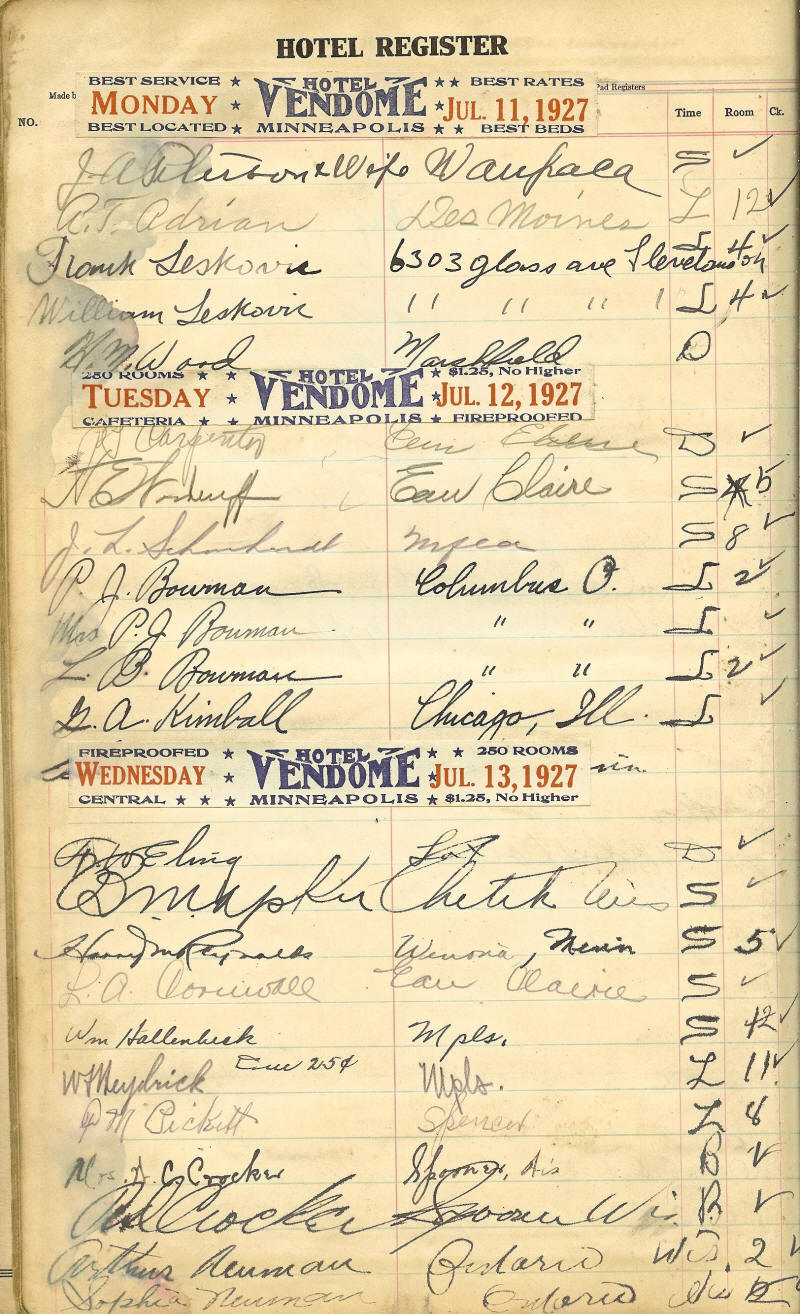 HOTEL REGISTER
Made b Pad Registers
NO. Time Room Ck.
BEST SERVICE ★ HOTEL ★★ BEST RATES
MONDAY ★ VENDOME ★ JUL. 11, 1927
BEST LOCATED ★ MINNEAPOLIS ★ ★ BEST BEDS
J A & Wife Waupaca S ✓
A. T. Adrian Des Moines L 12 ✓
Frank Leskovic 6303 glass ave L 4 ✓
William Leskovic " " " " L 4 ✓
H. M. Wood Marshfield D
250 ROOMS ★ HOTEL ★ $1.25, No Higher
TUESDAY ★ VENDOME ★ JUL. 12, 1927
CAFETERIA ★ MINNEAPOLIS ★ FIREPROOFED
Carpenter D ✓
Eau Claire S 5
J. L. S 8 ✓
P. J. Bowman Columbus O. L 2 ✓
Mrs P. J. Bowman " " L ✓
L. B. Bowman " " L 2 ✓
G. A. Kimball Chicago, Ill. L ✓
FIREPROOFED ★ HOTEL ★ ★ 250 ROOMS
WEDNESDAY ★ VENDOME ★ JUL. 13, 1927
CENTRAL ★ ★ ★ MINNEAPOLIS ★ $1.25, No Higher
Eling D ✓
Chetek Wis S ✓
Harry M Reynolds Winona, Minn S 5 ✓
L. A. Cornwall Eau Claire S ✓
Wm Hallenbeck Mpls. S 12 ✓
Due 25¢
W F Heydrick Mpls. L 11 ✓
M Pickett Spencer L 8
Mrs. A. C. Crocker Spooner, Wis B ✓
Crocker Spooner Wis B ✓
Arthur Neuman Ontario Wis. 2 ✓
Sophia Neuman Ontario Wis